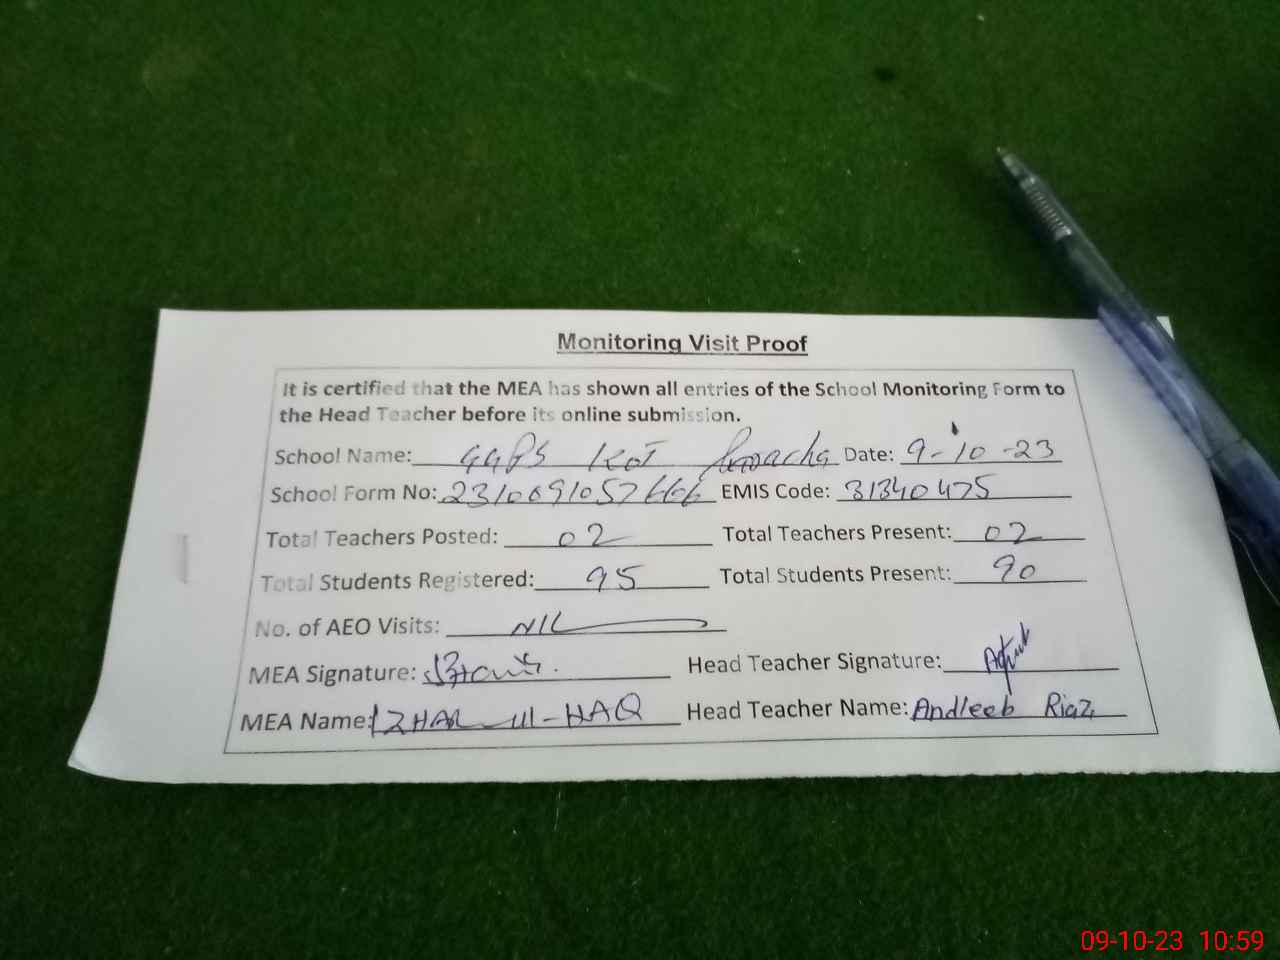 Monitoring Visit Proof
It is certified that the MEA has shown all entries of the School Monitoring Form to
the Head Teacher before its online submission.
School Name: GGPS KOT Date: 9-10-23
School Form No: 2310091057666 EMIS Code: 31340475
Total Teachers Posted: 02 Total Teachers Present: 02
Total Students Registered: 95 Total Students Present: 90
No. of AEO Visits: NIL
MEA Signature: Head Teacher Signature:
MEA Name: IZHAR-Ul-HAQ Head Teacher Name: Andleeb Riaz
09-10-23 10:59